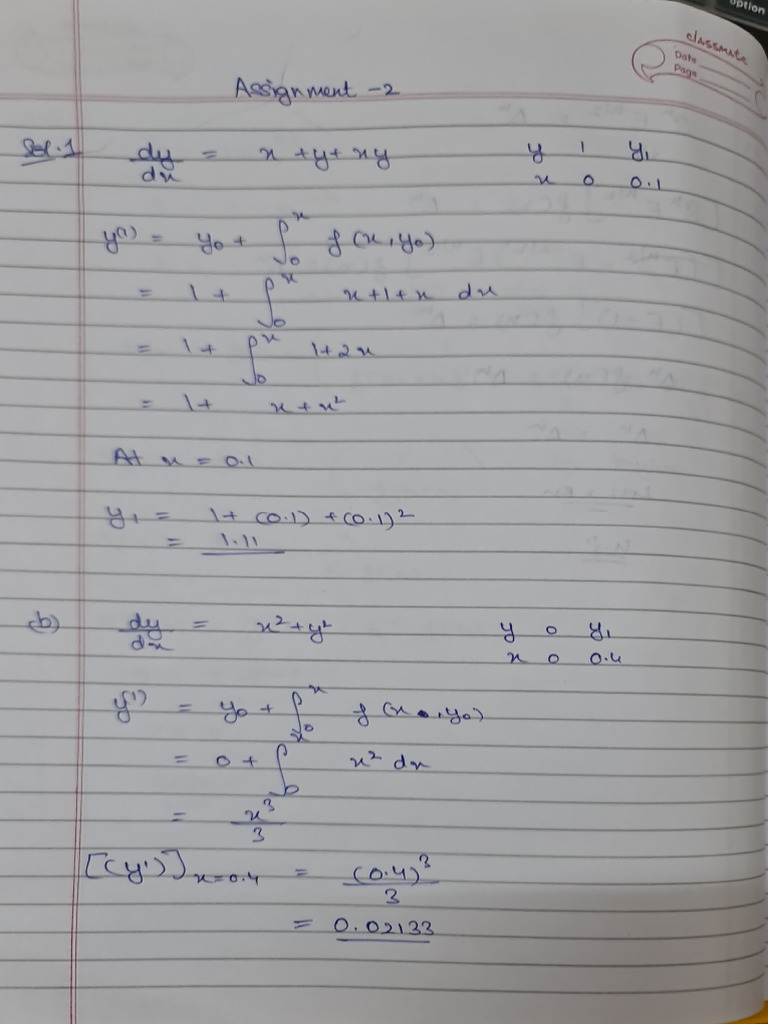 option
classmate
Date
Page
Assignment -2
Sol.1 dy/dx = x + y + xy y 1 y₁
x 0 0.1
y⁽¹⁾ = y₀ + ∫₀ˣ f(x, y₀)
= 1 + ∫₀ˣ x+1+x dx
= 1 + ∫₀ˣ 1+2x
= 1 + x + x²
At x = 0.1
y₁ = 1 + (0.1) + (0.1)²
= 1.11
(b) dy/dx = x² + y² y 0 y₁
x 0 0.4
y⁽¹⁾ = y₀ + ∫₀ˣ f(x, y₀)
= 0 + ∫₀ˣ x² dx
= x³/3
[(y¹)]ₓ₌₀.₄ = (0.4)³/3
= 0.02133